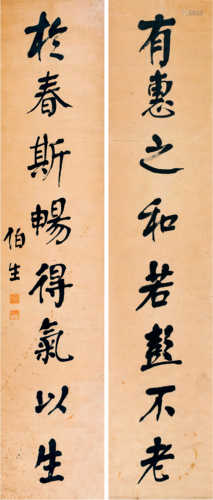 有惠之和若彭不老
於春斯暢得氣以生
伯生